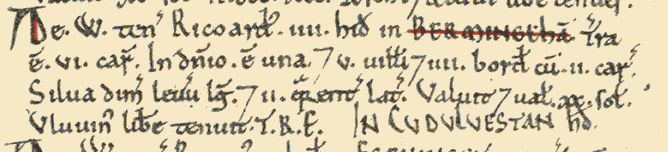 De. W. ten⁊ Ricoard⁊. iiii. hid in BERMINGEHĀ. T⁊ra
ē. vi. car⁊. In dn̄io. ē una. ⁊ v. uilli ⁊ iiii. bord⁊ cū. ii. car⁊.
Silua dim⁊ leuu lḡ. ⁊ ii. q̄rent⁊ lat⁊. Valuit ⁊ ual⁊. xx. sol⁊.
Vluuin⁊ lib̄e tenuit. T.R.E. IN CUDULVESTAN h̄d.